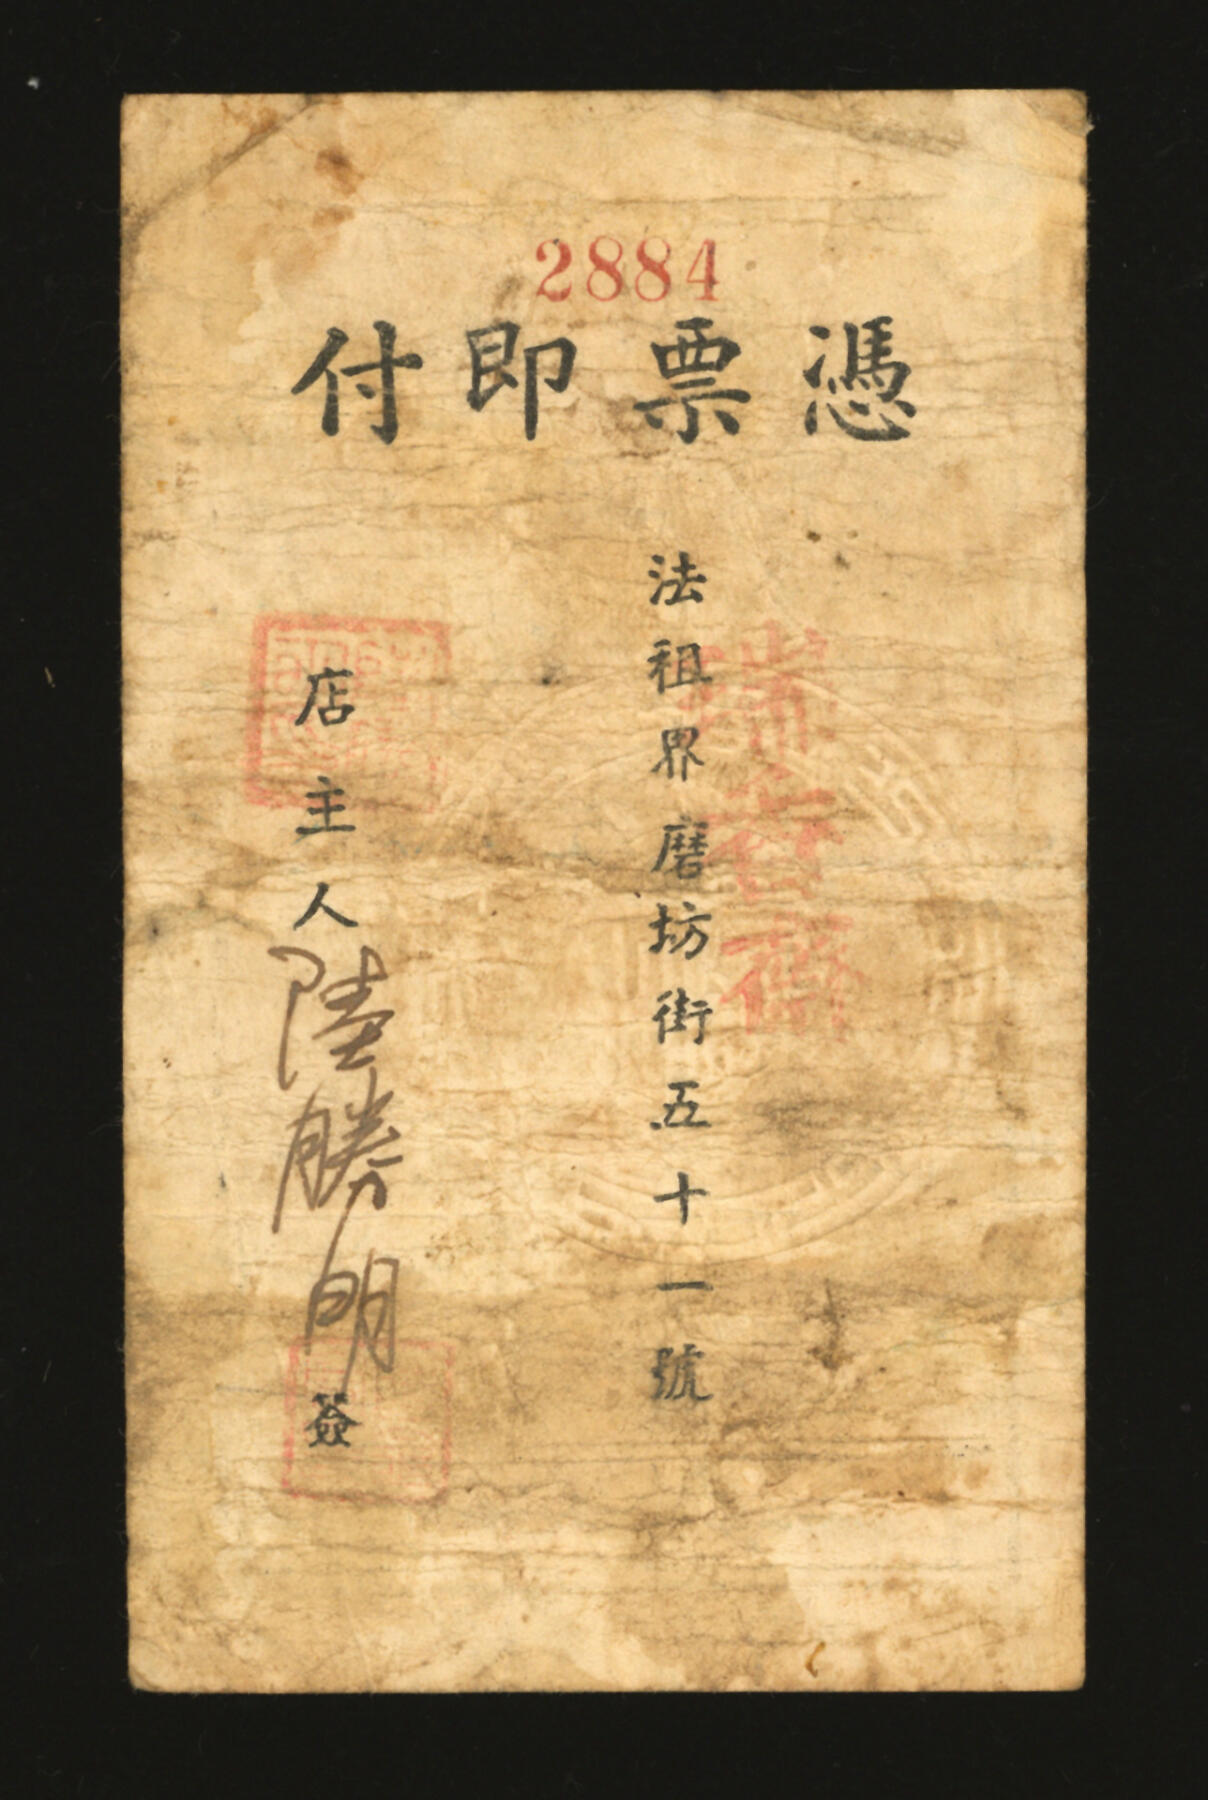 2884
憑票即付
瑞吉齋
法租界磨坊街五十一號
店主人陸勝明簽